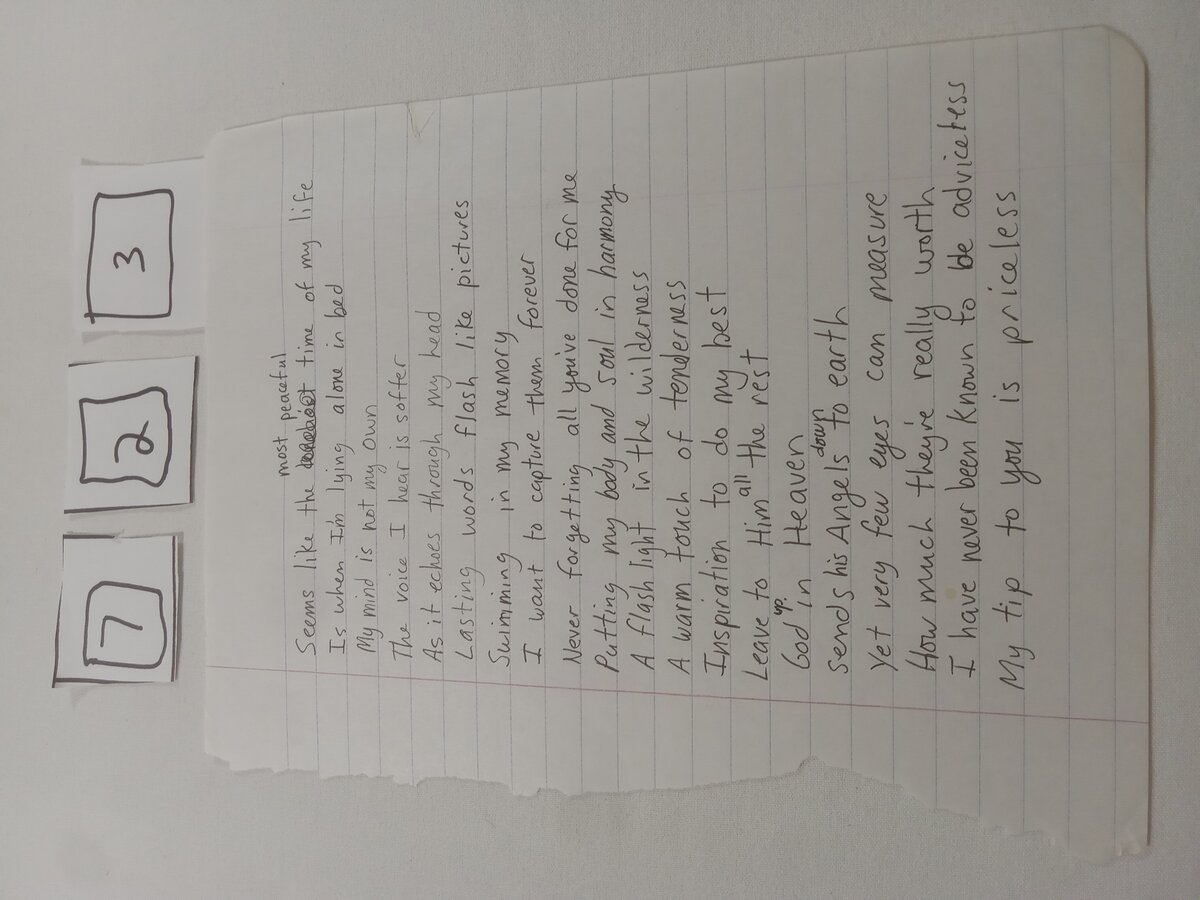 7 2 3
Seems like the most peaceful time of my life
Is when I'm lying alone in bed
My mind is not my own
The voice I hear is softer
As it echoes through my head
Lasting words flash like pictures
Swimming in my memory
I want to capture them forever
Never forgetting all you've done for me
Putting my body and soul in harmony
A flash light in the wilderness
A warm touch of tenderness
Inspiration to do my best
Leave to Him all the rest
God up in Heaven
Sends his Angels down to earth
Yet very few eyes can measure
How much they're really worth
I have never been known to be adviceless
My tip to you is priceless